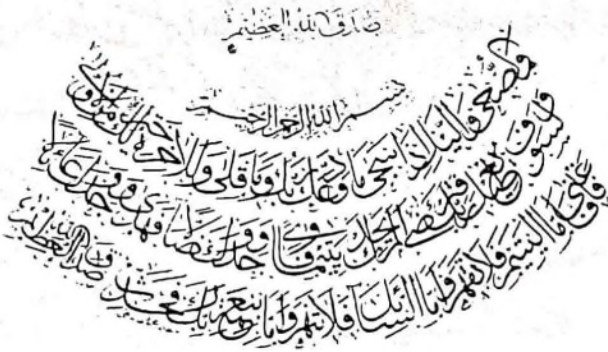 صدق الله العظيم
بسم الله الرحمن الرحيم
والضحى والليل إذا سجى ما ودعك ربك وما قلى وللآخرة خير لك من الأولى
ولسوف يعطيك ربك فترضى ألم يجدك يتيما فآوى ووجدك ضالا فهدى ووجدك عائلا
فأغنى فأما اليتيم فلا تقهر وأما السائل فلا تنهر وأما بنعمة ربك فحدث صدق الله العظيم